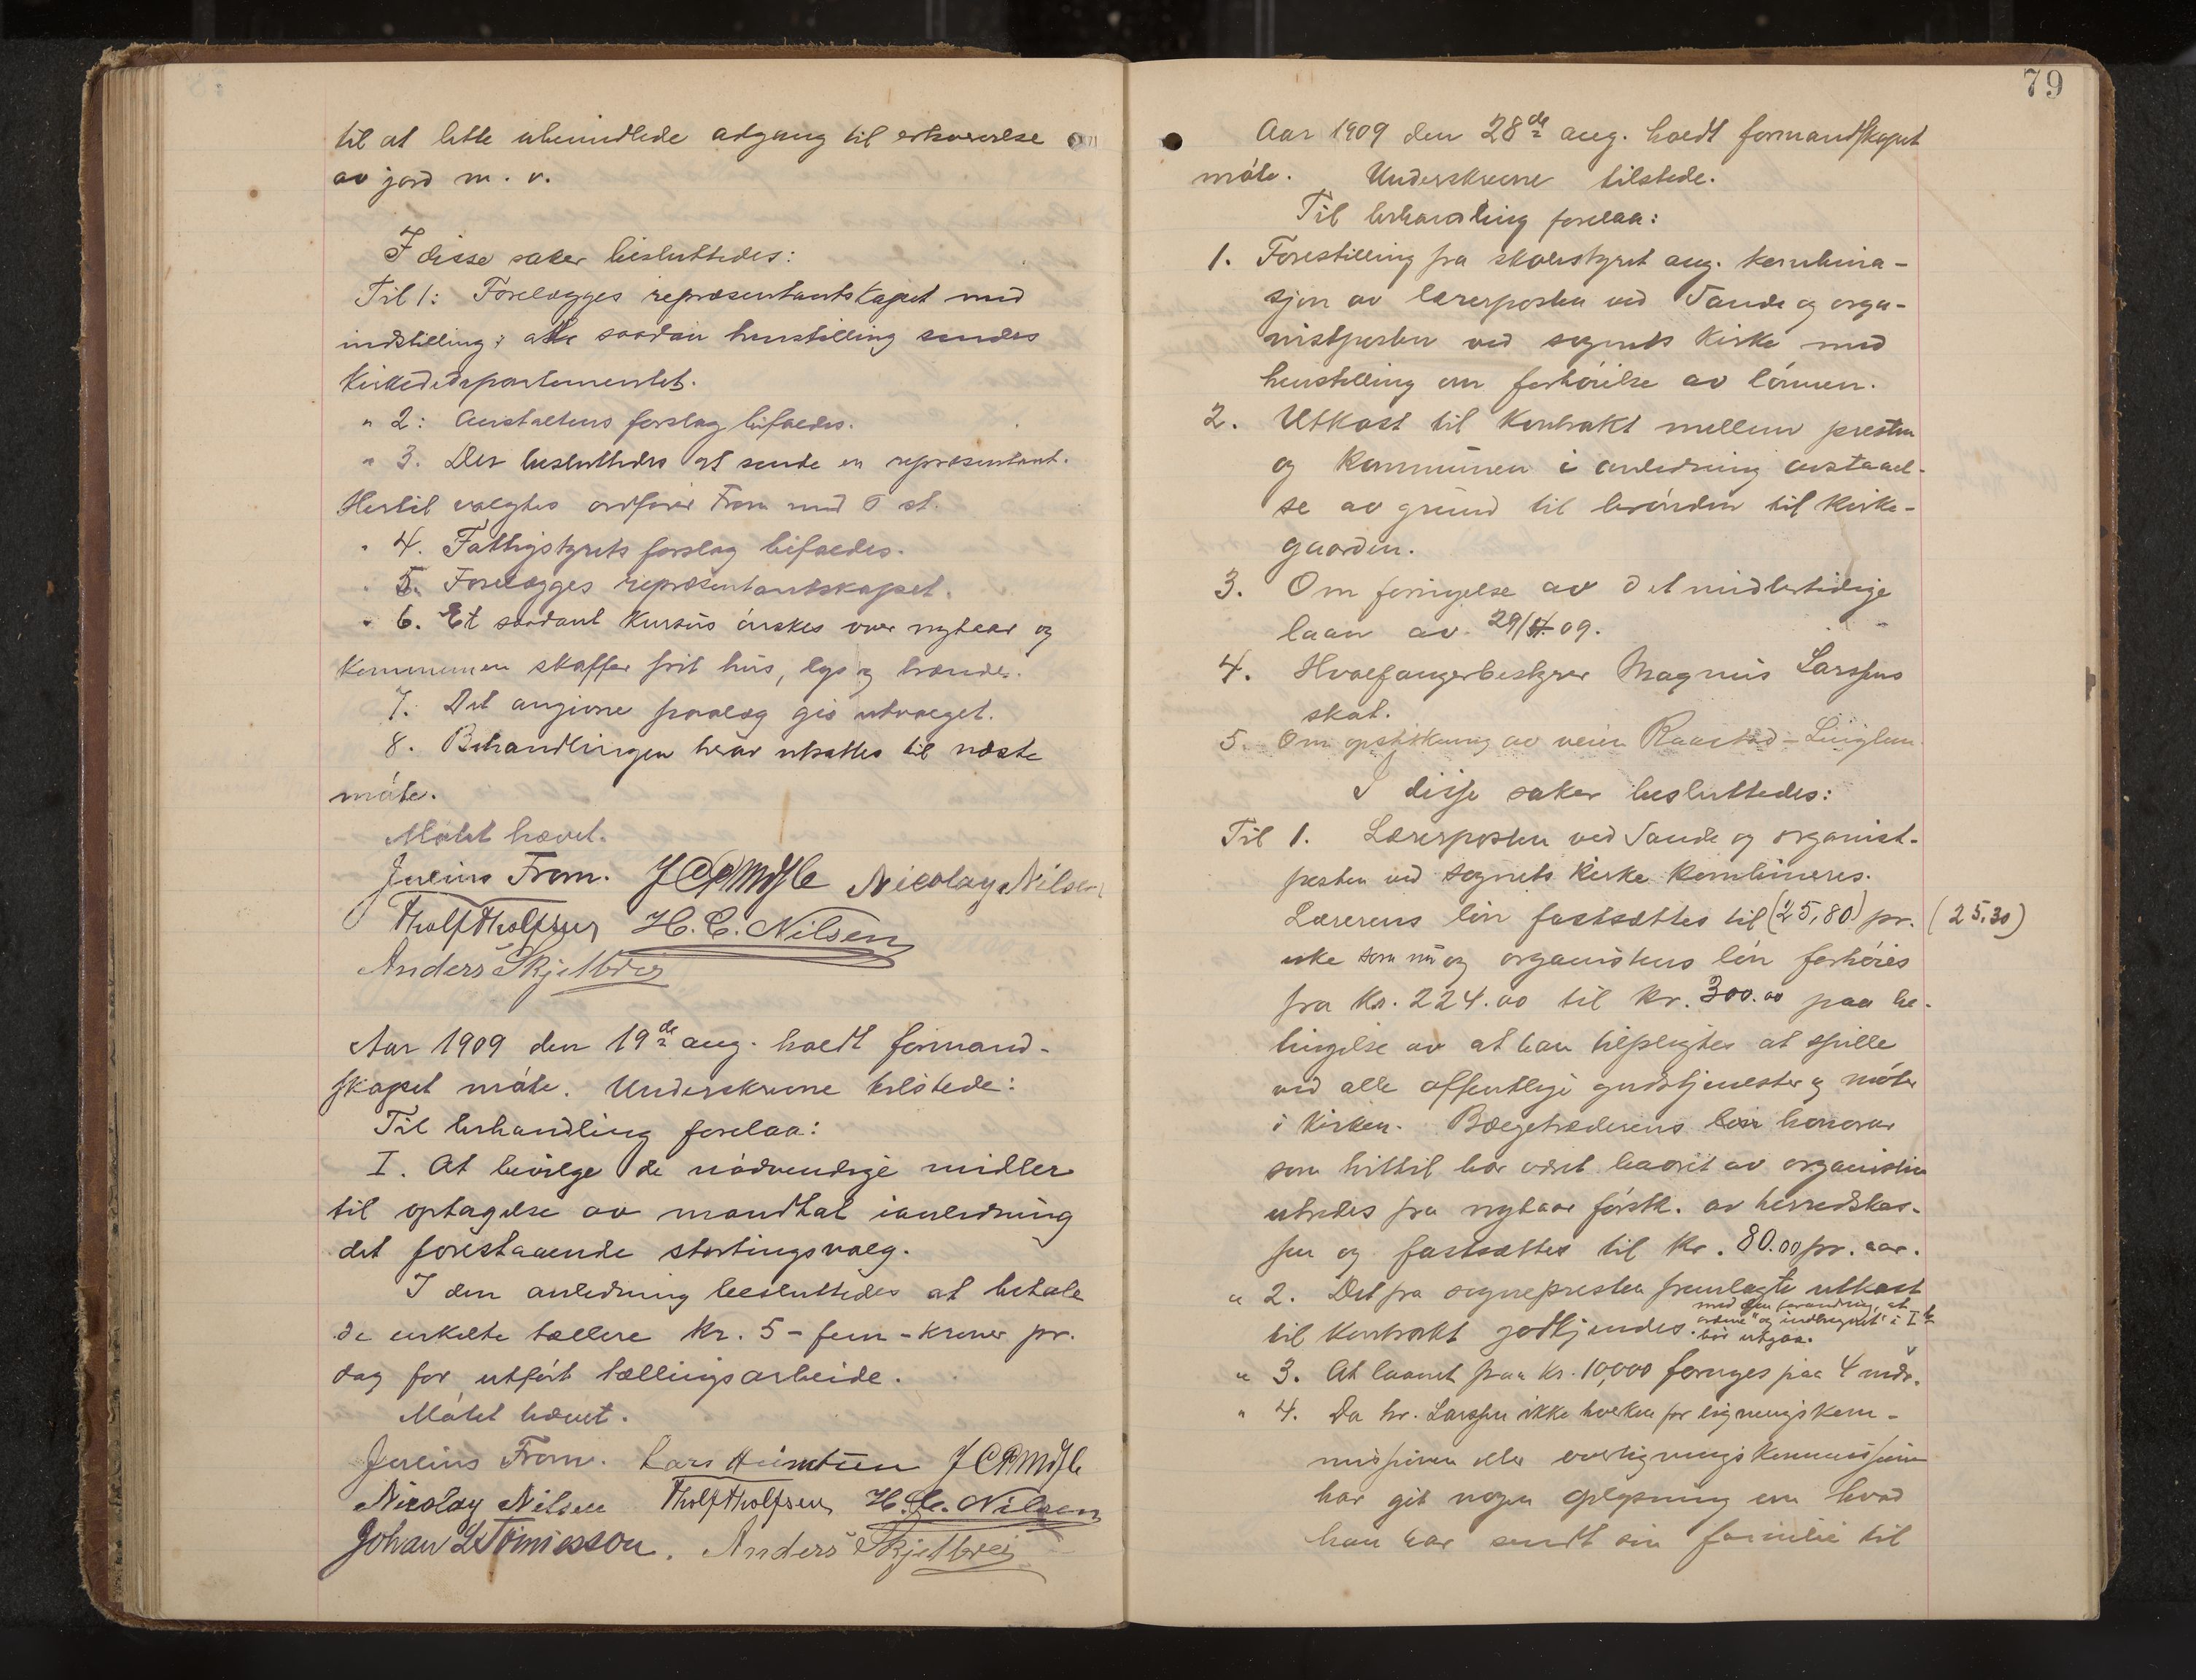 til at lette ubemidlede adgang til erhvervelse
av jord m. v.
I disse saker besluttedes:
Til 1: Forelægges repræsentantskapet med
indstilling: at saadan henstilling sendes
Kirkedepartementet.
" 2: Anstaltens forslag bifaldes.
" 3. Der besluttedes at sende en repræsentant.
Hertil valgtes ordfører From med 5 st.
" 4. Fattigstyrets forslag bifaldes.
" 5. Forelægges repræsentantskapet.
" 6. Et saadant kursus ønskes over nytaar og
kommunen skaffer frit hus, lys og brænde.
7. Det angivne paalæg gis utvalget.
8. Behandlingen herav utsattes til næste
møte.
Møtet hævet.
Julius From. Nicolay Nilsen
Tholf Tholfsen H. C. Nilsen
Anders Skjelbrei
Aar 1909 den 19de aug. holdt formand-
skapet møte. Underskrevne tilstede:
Til behandling forelaa:
I. At bevilge de nødvendige midler
til optagelse av mandtal i anledning
det forestaaende stortingsvalg.
I den anledning besluttedes at betale
de enkelte tællere Kr. 5 - fem - kroner pr.
dag for utført tællingsarbeide.
Møtet hævet.
Julius From. Lars
Nicolay Nilsen Tholf Tholfsen H. C. Nilsen
Johan L Tønnesson. Anders Skjelbrei
79
Aar 1909 den 28de aug. holdt formandskapet
møte. Underskrevne tilstede.
Til behandling forelaa:
1. Forestilling fra skolestyret ang. kombina-
sjon av lærerposten ved Sande og orga-
nistposten ved sognets kirke med
henstilling om forhøielse av lønnen.
2. Utkast til kontrakt mellem presten
og kommunen i anledning avstaael-
se av grund til brønden til kirke-
gaarden.
3. Om fornyelse av det midlertidige
laan av 29/4 09.
4. Hvalfangerbestyrer Magnus Larssens
skat.
5. Om opstikning av veien Raastad -
I disse saker besluttedes:
Til 1. Lærerposten ved Sande og organist-
posten ved sognets kirke kombineres.
Lærerens løn fastsættes til (25,80) pr. (25,30)
uke som nu og organistens løn forhøies
fra Kr. 224.00 til Kr. 300.00 paa be-
tingelse av at han tilpligtes at spille
ved alle offentlige gudstjenester og møter
i kirken. Bælgetræderens løn honorar
som hittil har været baaret av organisten
utredes fra nytaar førstk. av herredskas-
sen og fastsættes til Kr. 80.00 pr. aar.
" 2. Det fra sognepresten fremlagte utkast
til kontrakt godkjendes. med den forandring, at
og indhegnet i I
bør utgaa.
" 3. At laanet paa Kr. 10,000 fornyes paa 4 mdr.
" 4. Da hr. Larssen ikke hverken for ligningskom-
missionen eller overligningskommissionen
har git nogen oplysning om hvad
han har sendt sin familie til